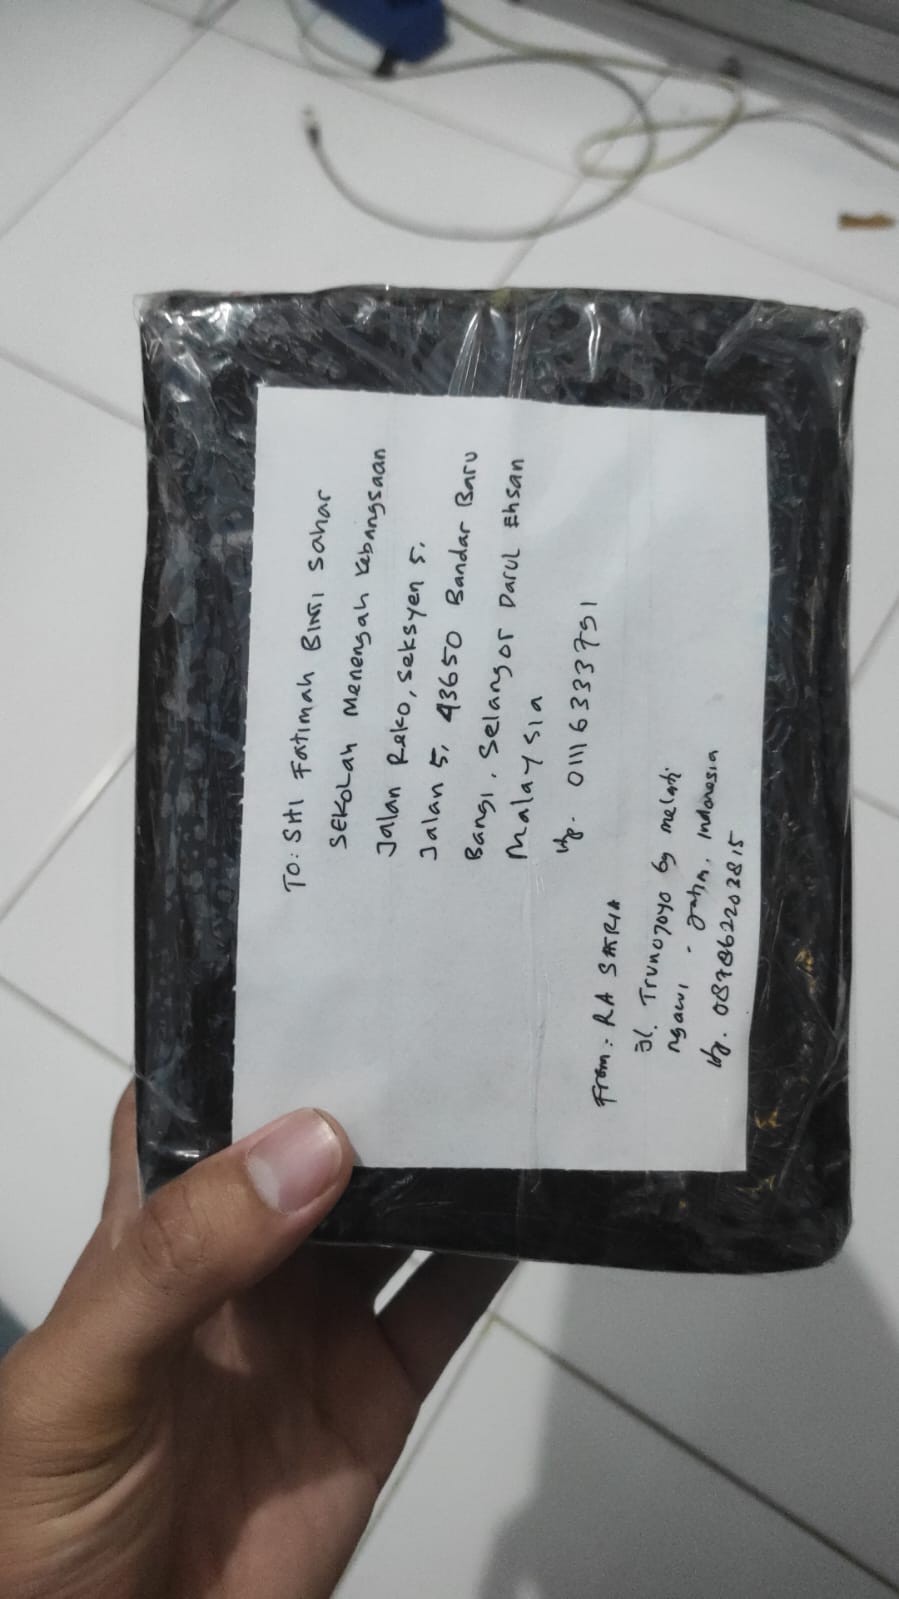 To: SHI FATIMAH BINTI SAHAR
SEKOLAH MENENGAH KEBANGSAAN
Jalan Reko, seksyen 5,
Jalan 5, 43650 Bandar Baru
Bangi, Selangor Darul Ehsan
Malaysia
Hp. 01116333791
From: RA SATRIA
Jl. Trunojoyo gg melati
ngawi - jatim, Indonesia
Hp. 087862202815